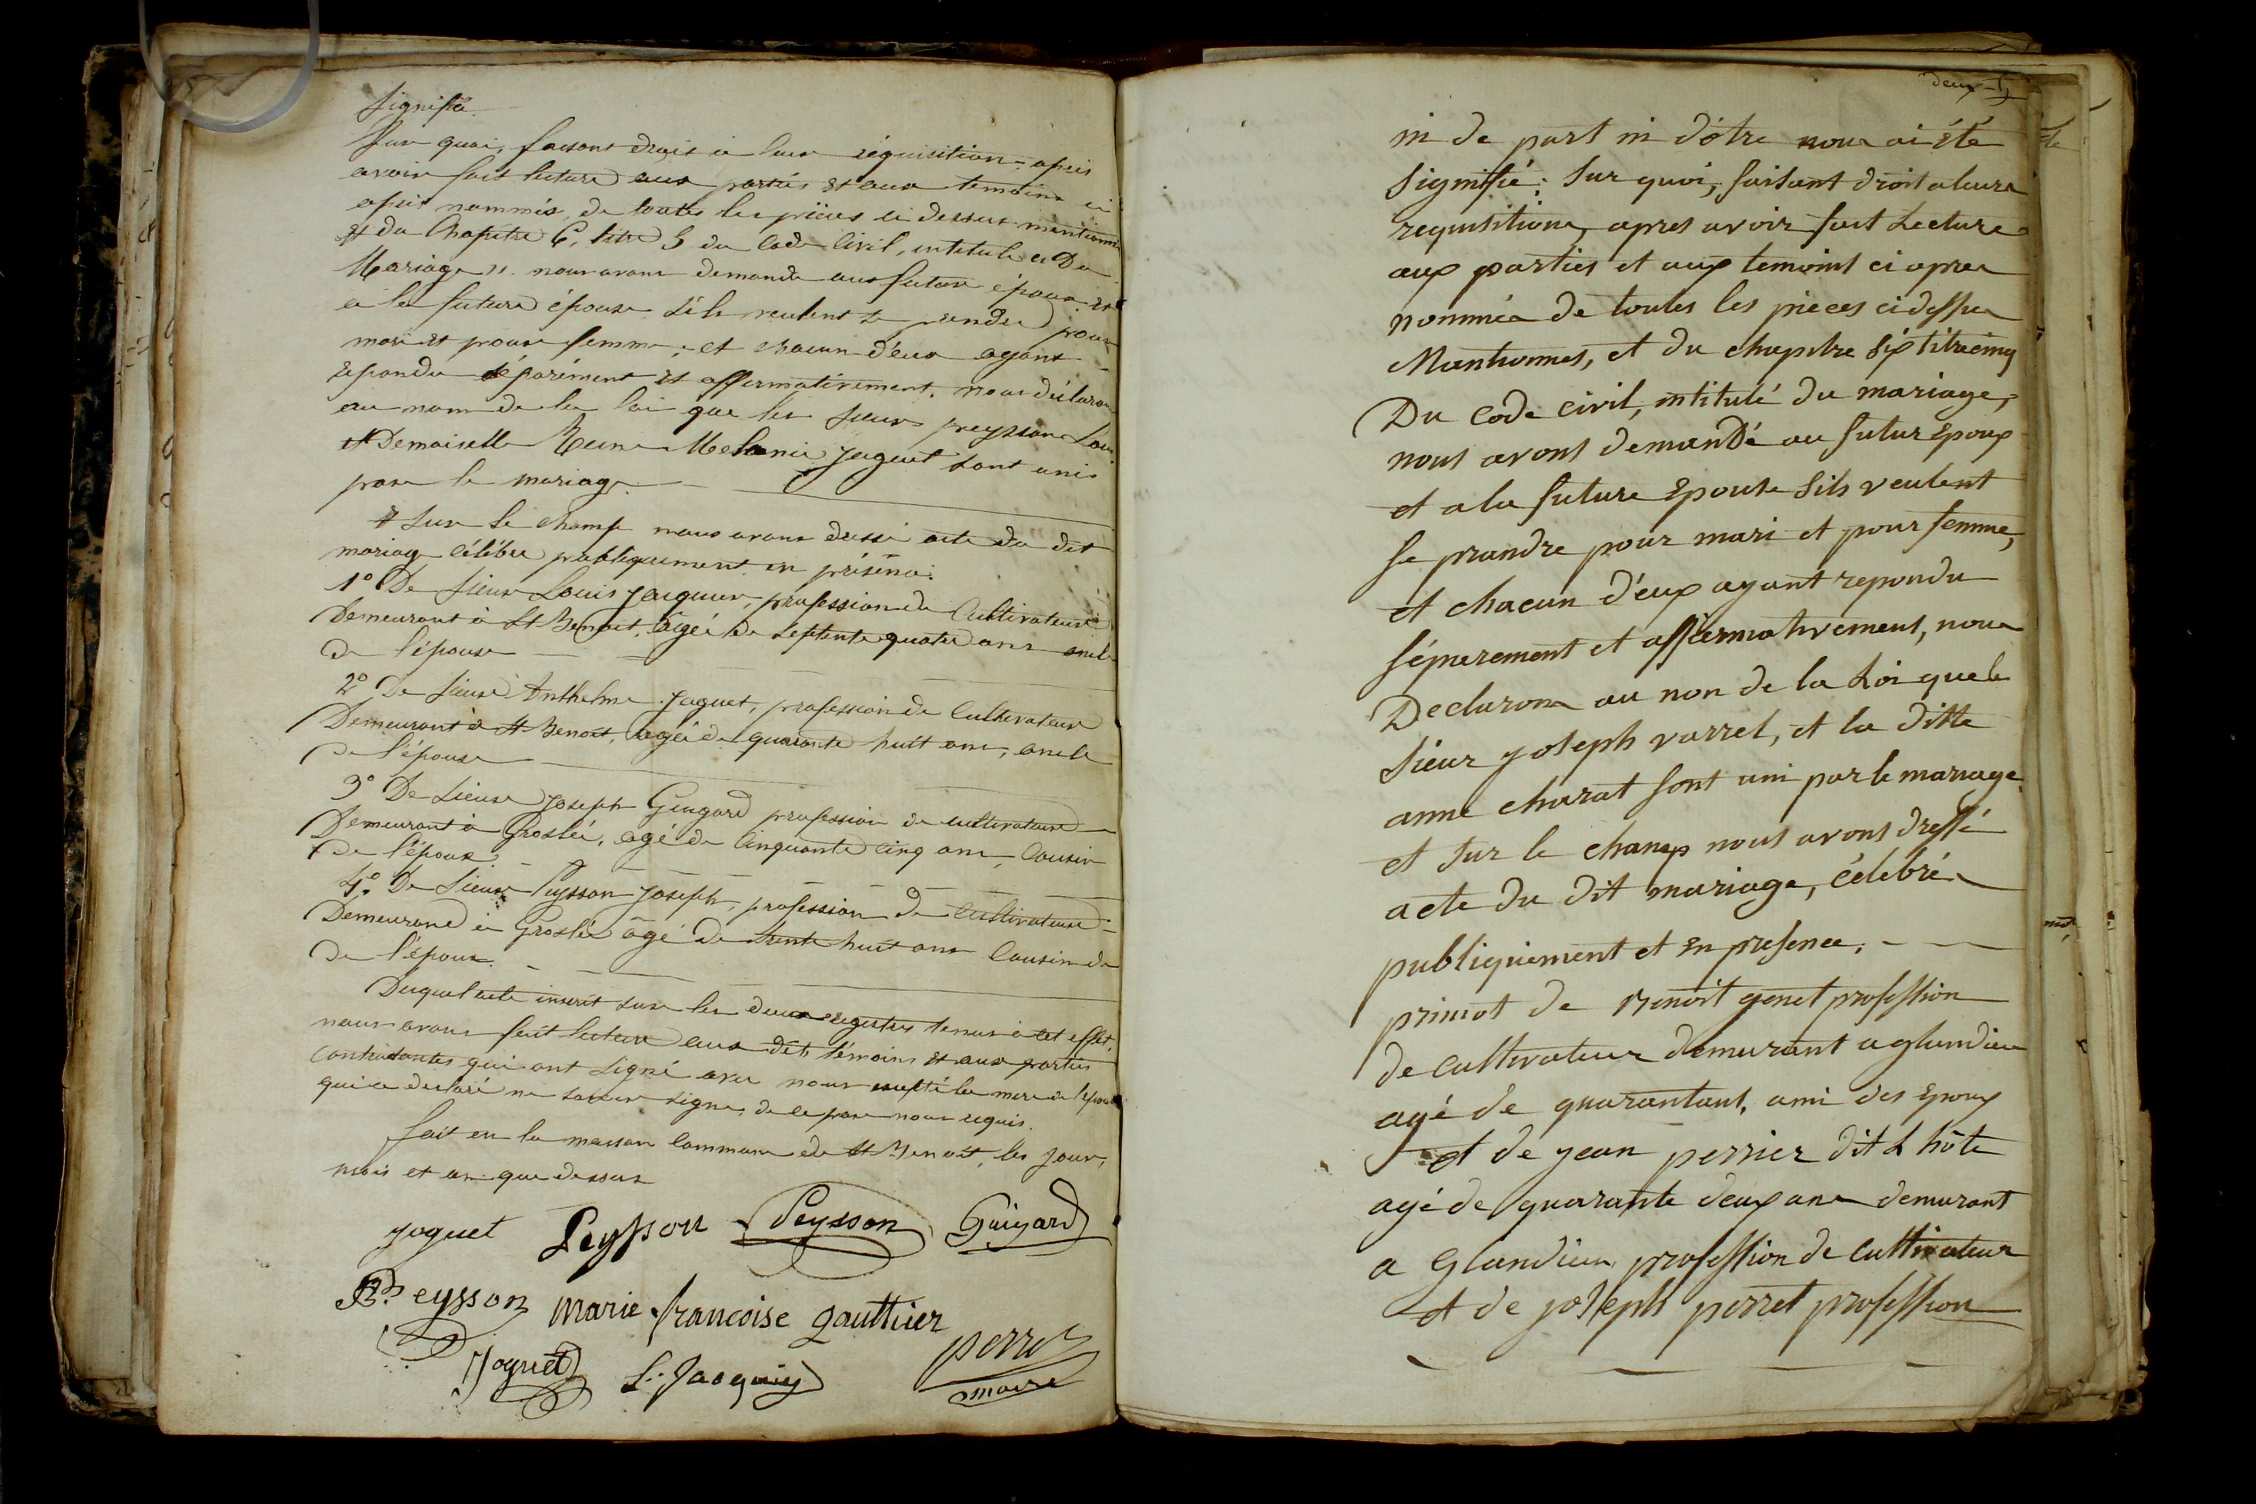 signifié.
Sur quoi, faisant droit à leur réquisition, après
avoir fait lecture aux parties et aux temoins ci
après nommés, de toutes les pièces ci dessus mentionn
et du Chapitre 6, titre 5 du Code Civil, intitulé « Du
Mariage ». nous avons demandé aux futur époux et
à la future épouse s'ils veulent se prendre pour
mari et pour femme, et chacun d'eux ayant
répondu séparément et affirmativement, nous déclaron
au nom de la loi que les sieur preysson Loui
et Demoiselle Reine Melanie jaguet sont unis
par le mariage.
et sur le champ nous avons dressé acte du dit
mariage célébré publiquement en présence.
1° De Sieur Louis jacquier, profession de Cultivateur
Demeurant à St Benoit, agée de septente quatre ans oncle
de l'épouse
2° De Sieur Anthelme jaguet, profession de Cultivateur
Demeurant à St Benoit, agée de quarante huit ans, oncle
de l'épouse
3° De Sieur joseph Guigard profession de cultivateur
Demeurant à Groslée, agé de Cinquante cinq ans, Cousin
de l'époux.
4° De Sieur Peysson joseph, profession de Cultivateur
Demeurand à Groslée âgé de trente huit ans Cousin de
de l'époux.
Duquel acte inscrit sur les deux registres tenus à cet effet,
nous avons fait lecture aux dits témoins et aux parties
Contractantes qui ont signé avec nous excepté la mere de l'époux
qui a declaré ne savoir signer de ce par nous requis.
fait en la maison Commune de St Benoit, les jour,
mois et an que dessus
joguet Peysson Peysson Guigard
Peysson marie francoise gauthier
Joguet L. Jacquier perret
maire
deux
ni de part ni d'ôtre nous ai été
signifié: Sur quoi, faisant droit aleurs
requisitions, apres avoir fait Lecture
aux parties et aux temoins ci apres
nommés de toutes les pieces ci dessus
Mantionnes, et du chapitre six titre cinq
Du code civil, intitulé du mariage,
nous avons demandé au futur Epoux
et a la future Epouse sils veulent
se prandre pour mari et pour femme,
et chacun d'eux ayant repondu
séparement et affermativement, nous
Declarons au non de la Loi que le
Sieur joseph varrel, et la ditte
anne charat sont uni par le mariage.
et sur le champ nous avons dressé
acte du dit mariage, célébré
publiquement et en presence.
primot de Benoit genet profession
de cultivateur demurant a glandieu
agé de quarantant, ami des Epoux
et de jean perrier dit L hôte
agé de quarante deux ans demurant
a Glandieu profession de cultivateur
et de joseph perret profession